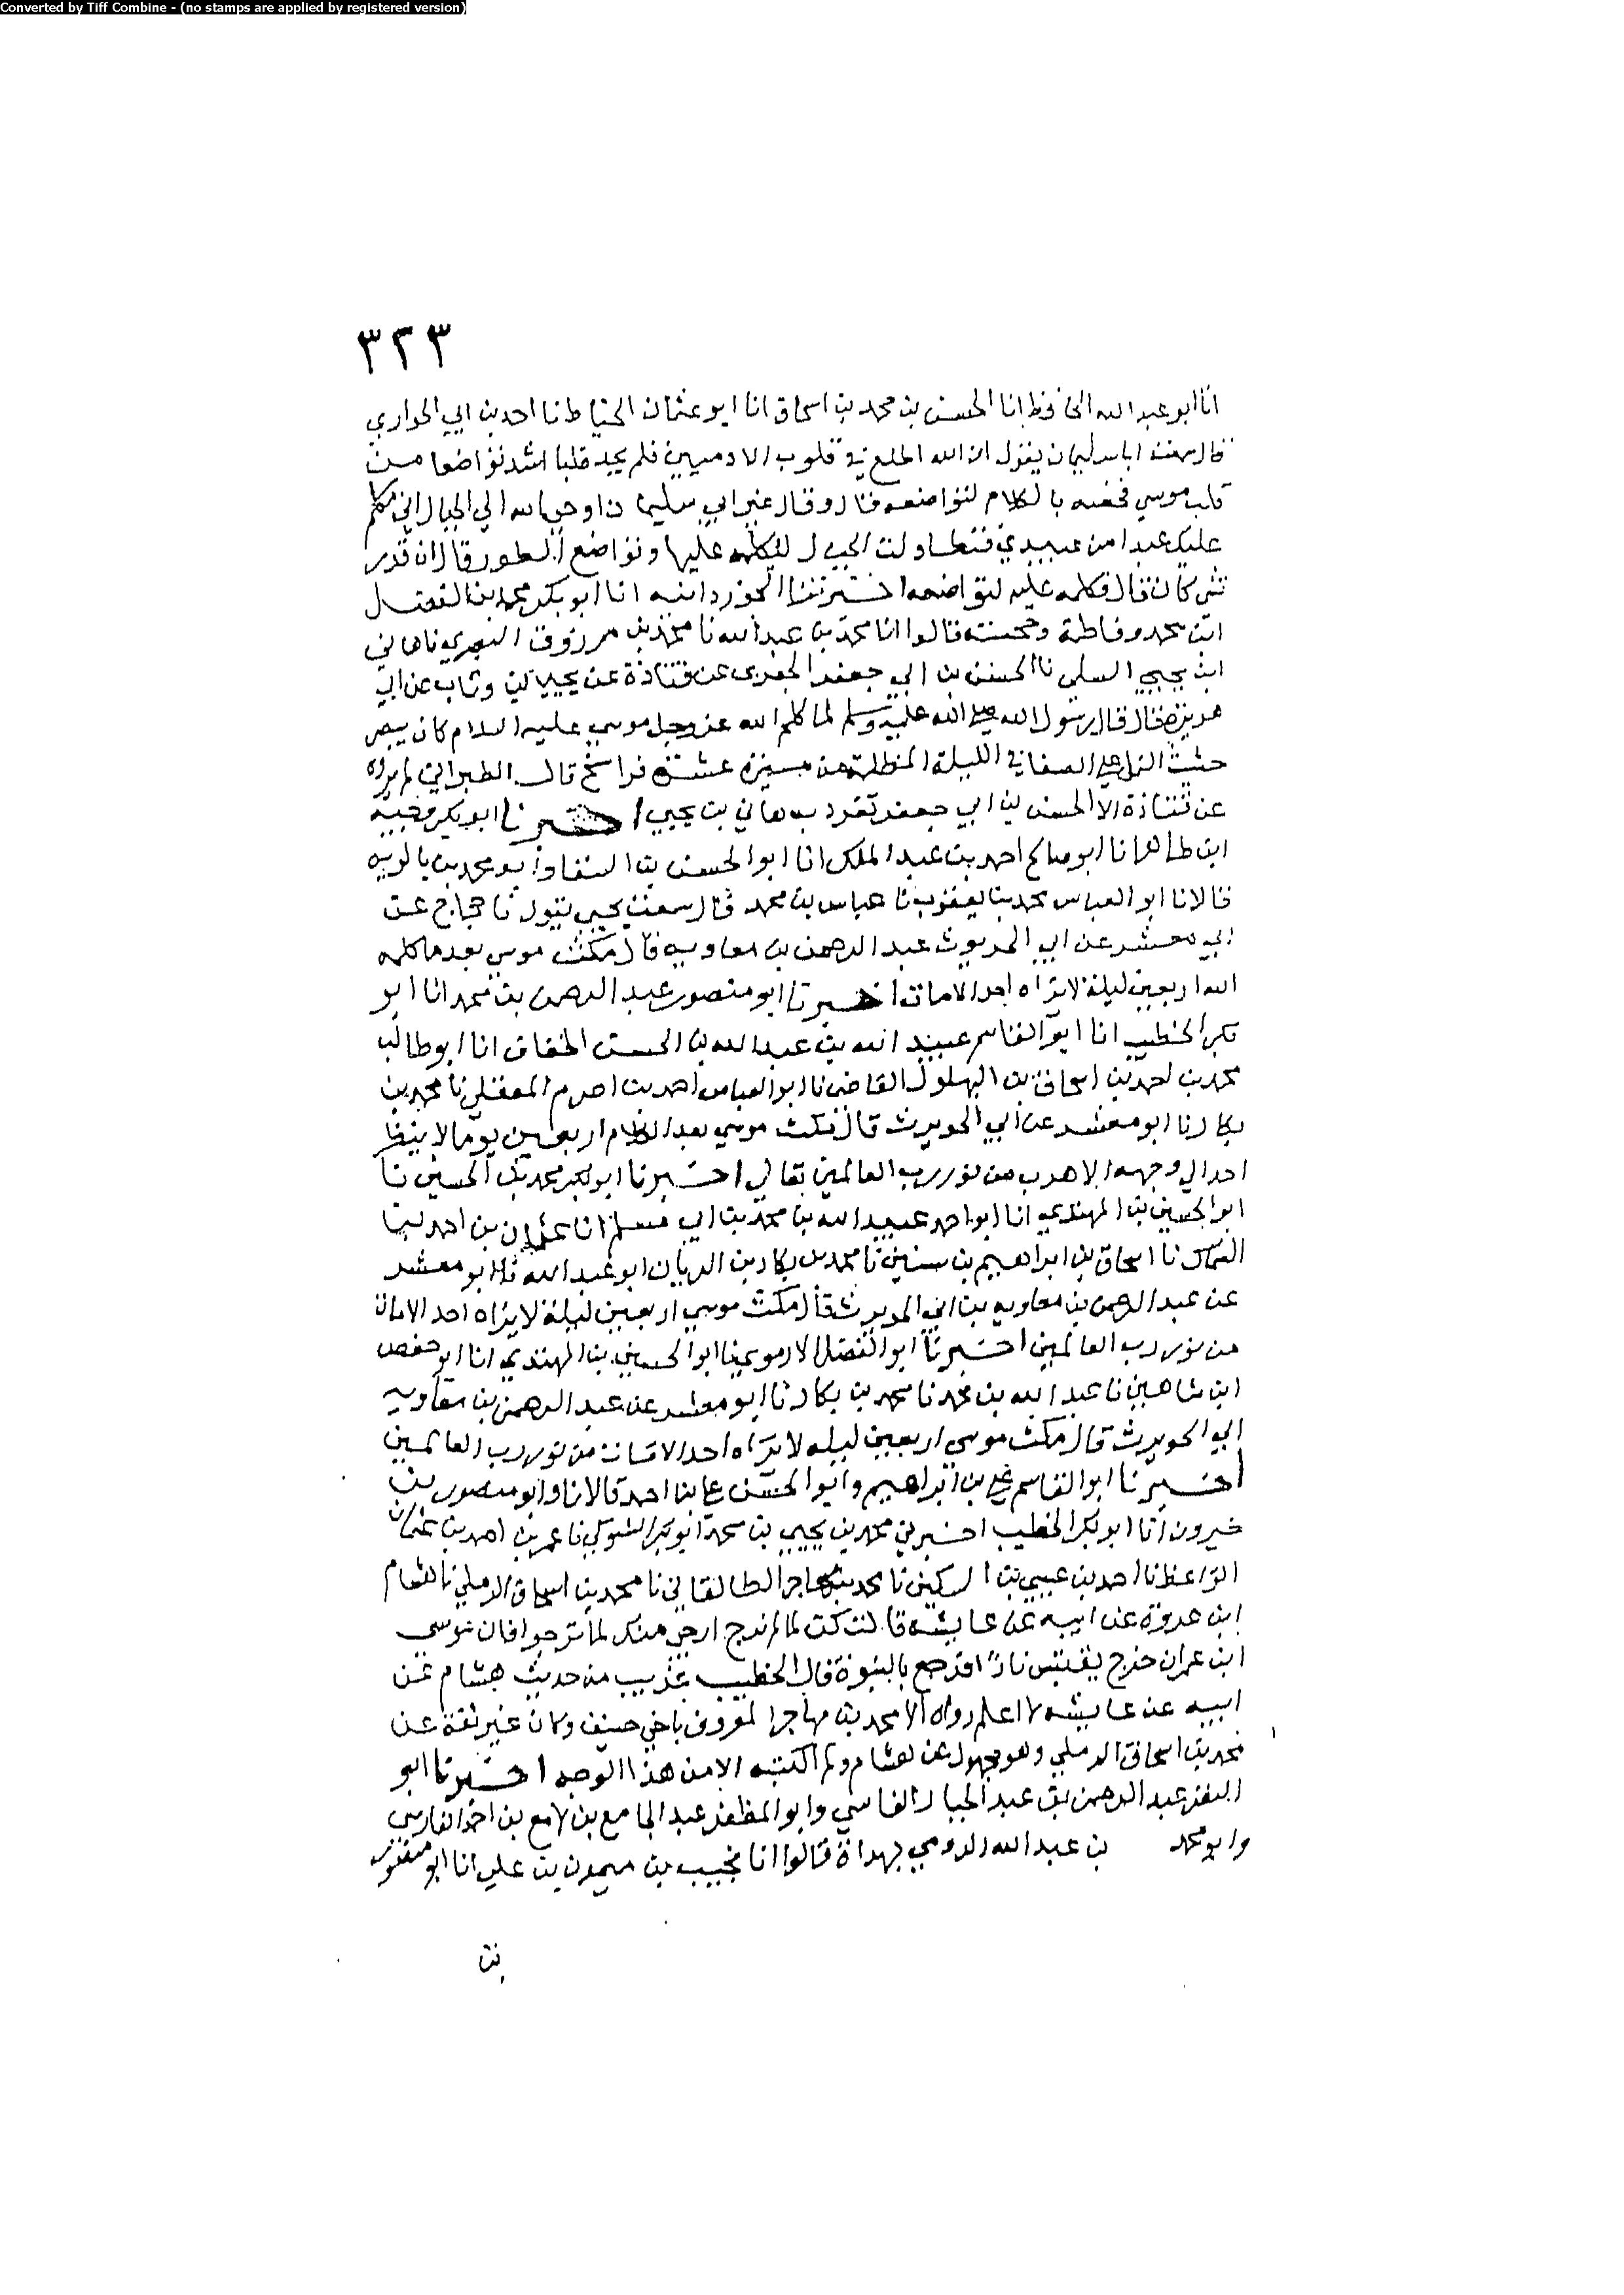 Converted by Tiff Combine - (no stamps are applied by registered version)
٣٢٣
انا ابو عبد الله الحافظ انا الحسن بن محمد بن اسحاق انا ابو عثمان الحناط نا احمد بن ابي الحواري
قال سمعت ابا سليمان يقول ان الله اطلع في قلوب الادميين فلم يجد قلبا اشد تواضعا من
قلب موسى فخصه بالكلام لتواضعه قال وقال غير ابي سليمان اوحى الله الي الجبال اني مكلم
عليك عبدا من عبيدي فتطاولت الجبال ليكلمه عليها وتواضع الطور قال ان قدر
شي كان قال فكلمه عليه لتواضعه اخبرتنا الخوزدانيه انا ابو بكر محمد بن الفضل
ابن محمد وفاطمة قالوا انا محمد بن عبد الله نا محمد بن مرزوق البصري نا هاني
ابن يحيى السلمي نا الحسن بن ابي جعفر الجفري عن قتادة عن يحيى بن وثاب عن ابي
هريرة قال قال رسول الله صلى الله عليه وسلم لما كلم الله عز وجل موسى عليه السلام كان يبصر
النمل على الصفا في الليلة المظلمة من مسيرة عشرة فراسخ قال الطبراني لم يروه
عن قتادة الا الحسن بن ابي جعفر تفرد به هاني بن يحيى اخبرنا ابو بكر وجيه
ابن طاهر انا ابو صالح احمد بن عبد الملك انا ابو الحسن بن السقا وابو محمد بن بالويه
قالا نا ابو العباس محمد بن يعقوب نا عباس بن محمد قال سمعت يحيى يقول نا حجاج عن
ابي معشر عن ابي الحويرث عبد الرحمن بن معاويه قال مكث موسى بعد ما كلمه
الله اربعين ليلة لا يراه احد الا مات اخبرنا ابو منصور عبد الرحمن بن محمد انا ابو
بكر الخطيب انا ابو القاسم عبيد الله بن عبد الله بن الحسن الخفاف انا ابو طالب
محمد بن احمد بن اسحاق بن البهلول القاضي نا ابو العباس احمد بن اصرم المغفلي نا محمد بن
بكار نا ابو معشر عن ابي الحويرث قال مكث موسى بعد الكلام اربعين يوما لا ينظر
احد الي وجهه الا هرب من نور رب العالمين تعالى اخبرنا ابو بكر محمد بن الحسين نا
ابو الحسين بن المهتدي انا ابو احمد عبيد الله بن محمد بن ابي مسلم انا عثمان بن احمد بن
السماك نا اسحاق بن ابراهيم بن سنين نا محمد بن بكار بن الريان ابو عبد الله نا ابو معشر
عن عبد الرحمن بن معاويه بن ابي الحويرث قال مكث موسى اربعين ليلة لا يراه احد الا مات
من نور رب العالمين اخبرنا ابو الفضل الارموي نا ابو الحسين بن المهتدي انا ابو حفص
ابن شاهين نا عبد الله بن محمد نا محمد بن بكار نا ابو معشر عن عبد الرحمن بن معاويه
ابي الحويرث قال مكث موسى اربعين ليله لا يراه احد الا مات من نور رب العالمين
اخبرنا ابو القاسم علي بن ابراهيم وابو الحسن علي بن احمد قالا نا وابو منصور بن
خيرون انا ابو بكر الخطيب اخبرني محمد بن يحيى بن محمد ابو بكر الشوكي نا عمر بن احمد بن عثمان
الواعظ نا احمد بن عيسى بن السكين نا محمد بن مهاجر الطالقاني نا محمد بن اسحاق الرملي نا هشام
ابن عروة عن ابيه عن عايشه قالت كن لما لم ترج ارجى منك لما ترجوا فان موسى
ابن عمران خرج يقتبس نارا فرجع بالنبوة قال الخطيب غريب من حديث هشام عن
ابيه عن عايشه لا اعلم رواه الا محمد بن مهاجر المعروف باخي حنيف وكان غير ثقة عن
محمد بن اسحاق الرملي وهو مجهول عن هشام ولم اكتبه الا من هذا الوجه اخبرنا ابو
النضر عبد الرحمن بن عبد الجبار الفامي وابو المظفر عبد الجامع بن لامع بن احمد الفارسي
وابو محمد بن عبد الله الرومي بهراة قالوا انا نجيب بن ميمون بن علي انا ابو منصور
بن